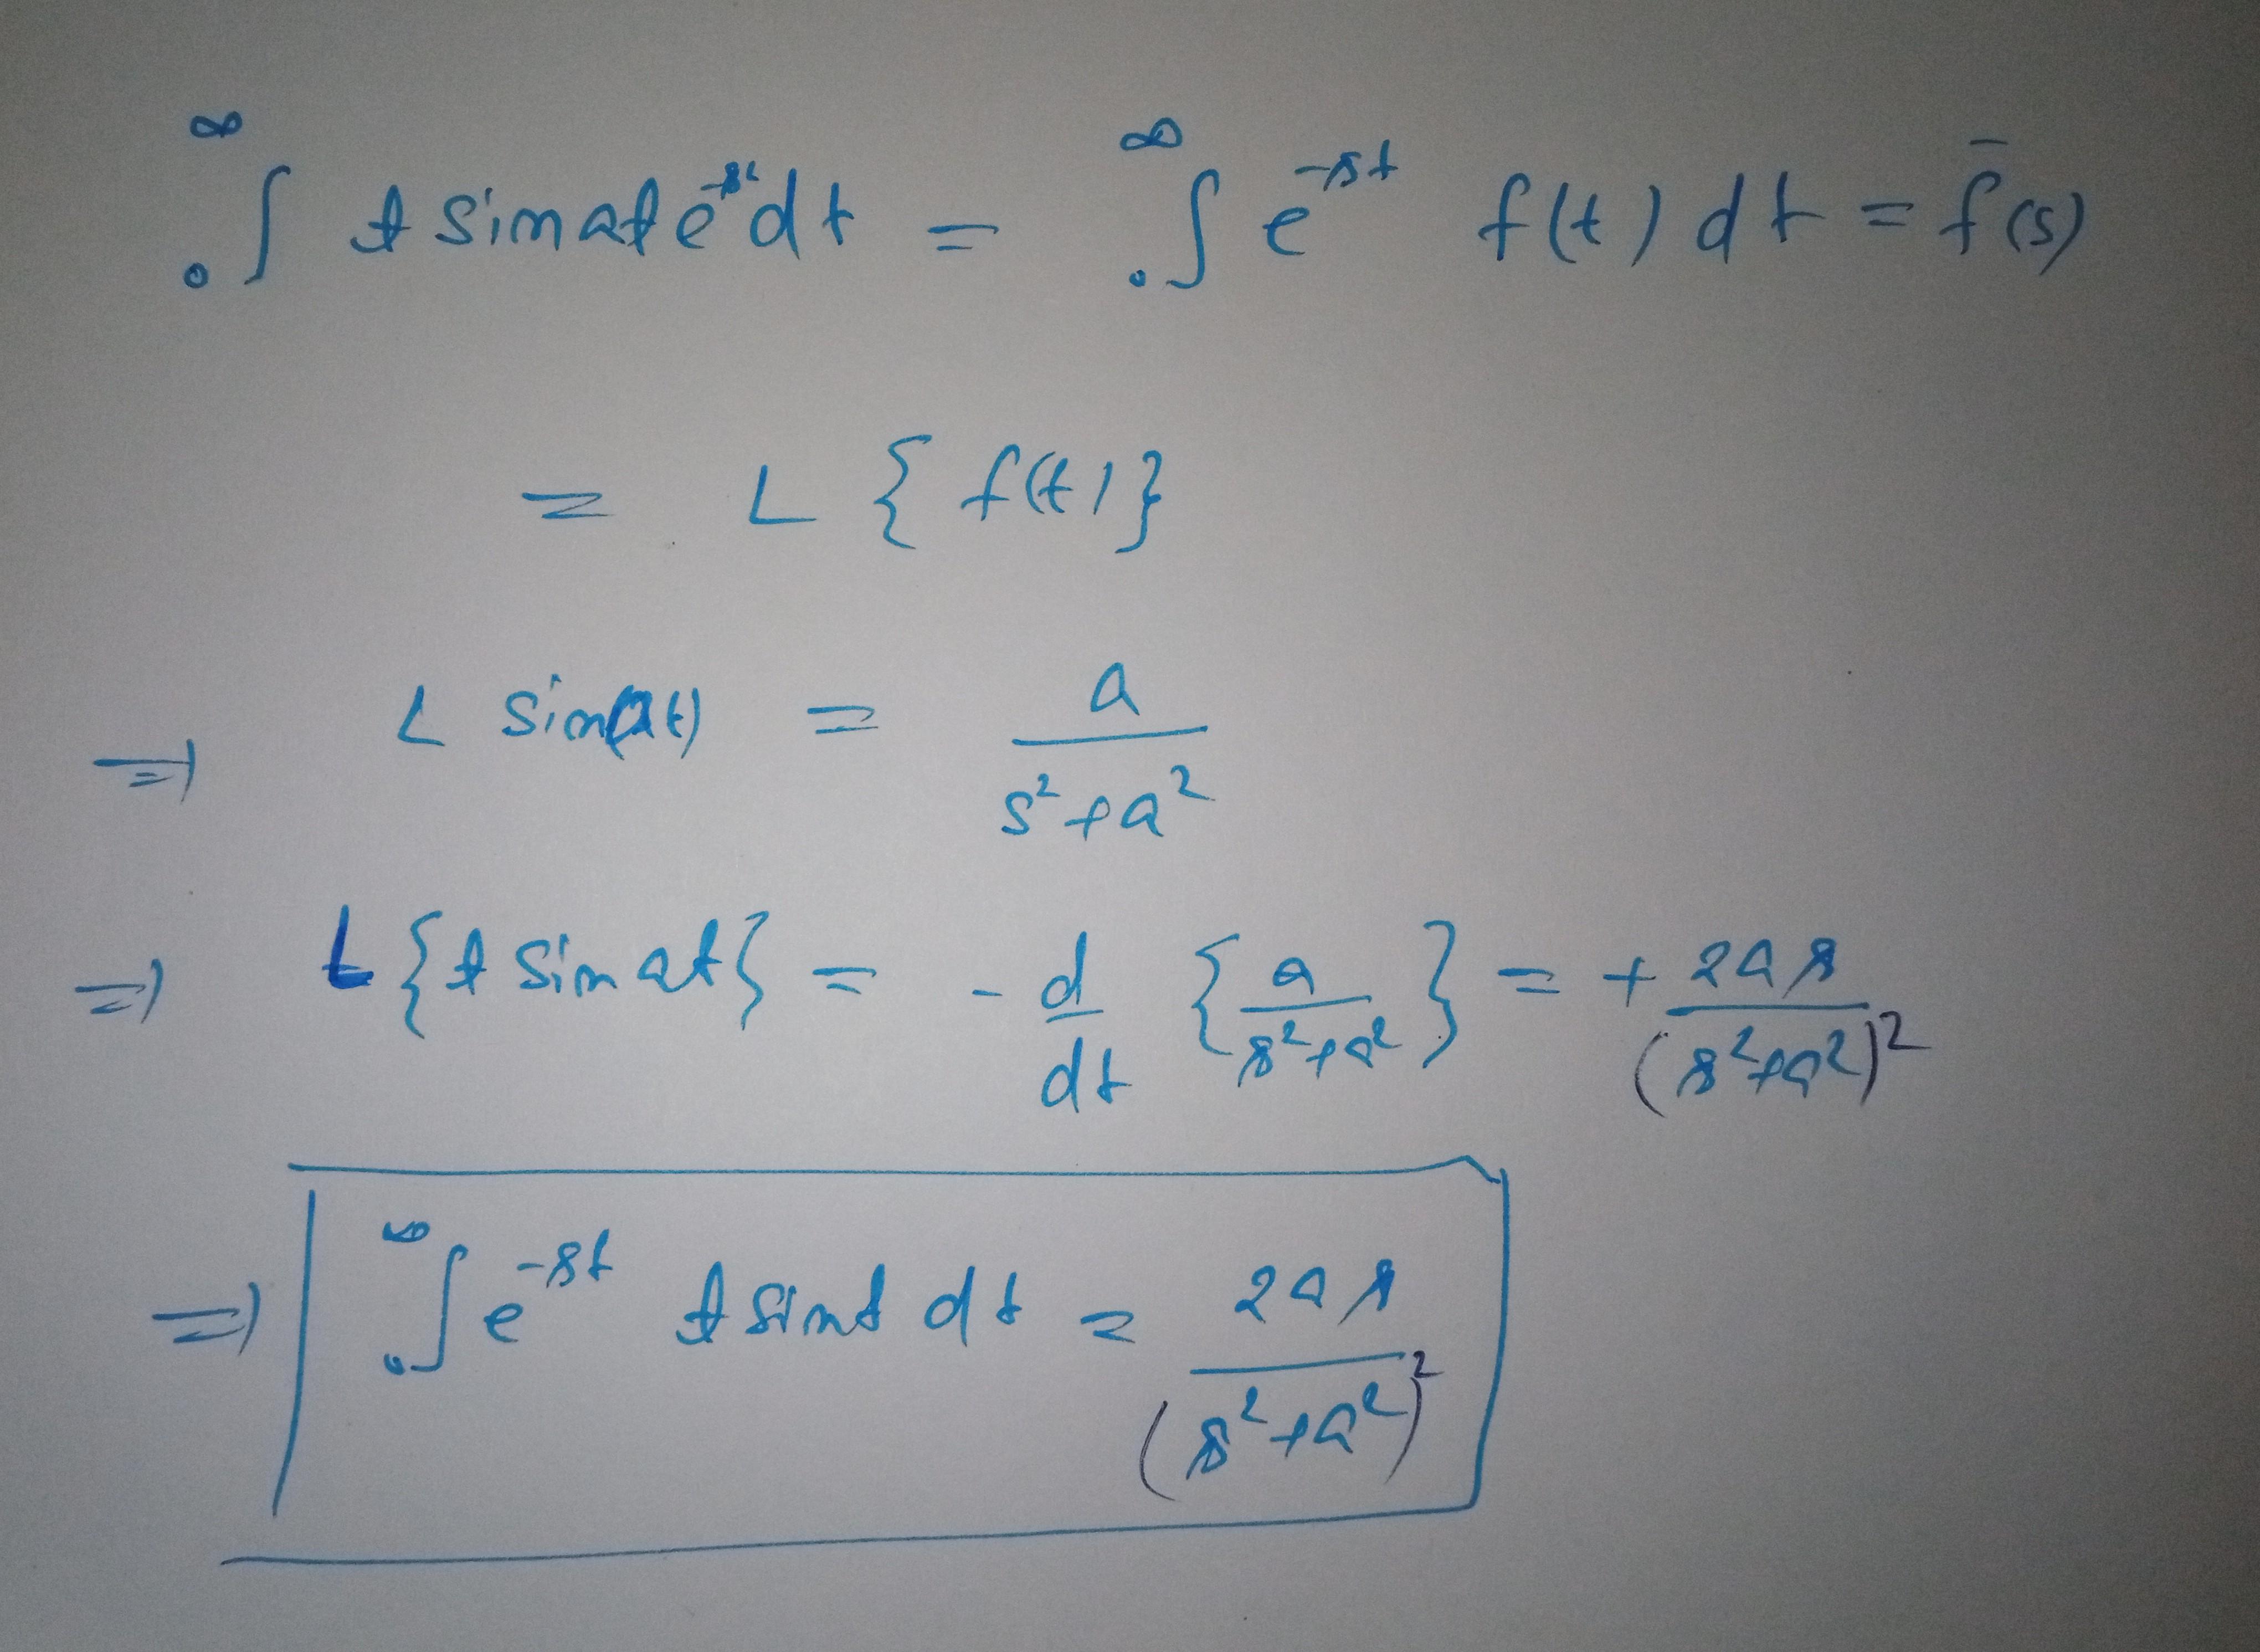 ∫₀^∞ t sin at e^{-st} dt = ∫₀^∞ e^{-st} f(t) dt = f̄(s)
= L { f(t) }
⇒ L sin(at) = a / (s² + a²)
⇒ L { t sin at } = - d/dt { a / (s² + a²) } = + 2as / (s² + a²)²
⇒ ∫₀^∞ e^{-st} t sin t dt = 2as / (s² + a²)²